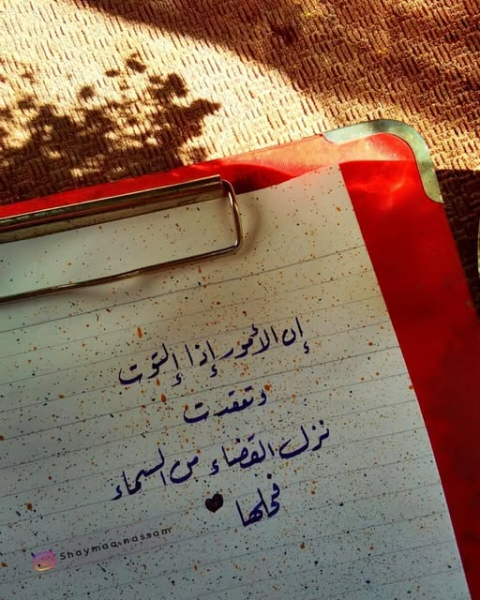 إن الأمور إذا إلتوت
وتعقدت
نزل القضاء من السماء
فحلها
Shaymaa.nassam